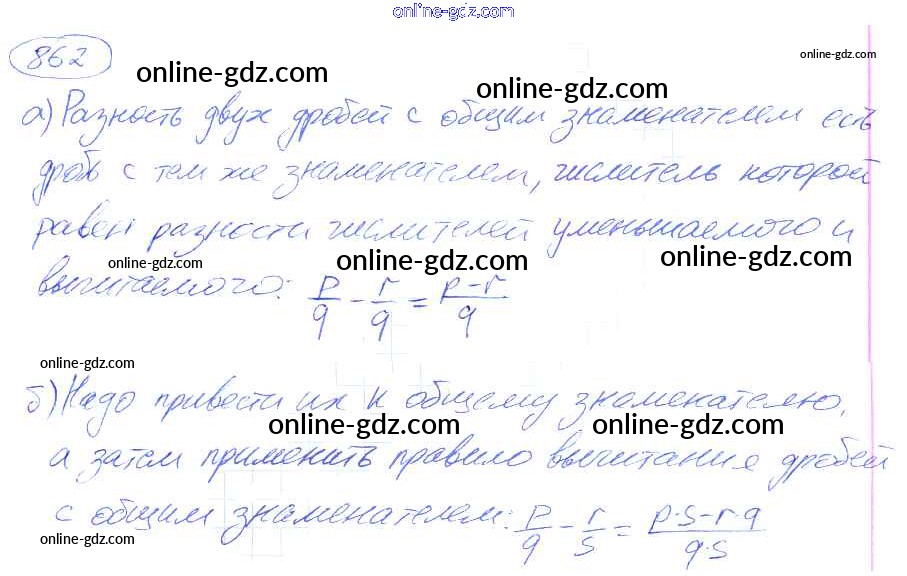 online-gdz.com
862
online-gdz.com
online-gdz.com
online-gdz.com
а) Разность двух дробей с общим знаменателем есть
дробь с тем же знаменателем, числитель которой
равен разности числителей уменьшаемого и
online-gdz.com
online-gdz.com
online-gdz.com
вычитаемого: p/q - r/q = p-r/q
online-gdz.com
б) Надо привести их к общему знаменателю,
online-gdz.com
online-gdz.com
а затем применить правило вычитания дробей
с общим знаменателем: p/q - r/s = p·s-r·q/q·s
online-gdz.com